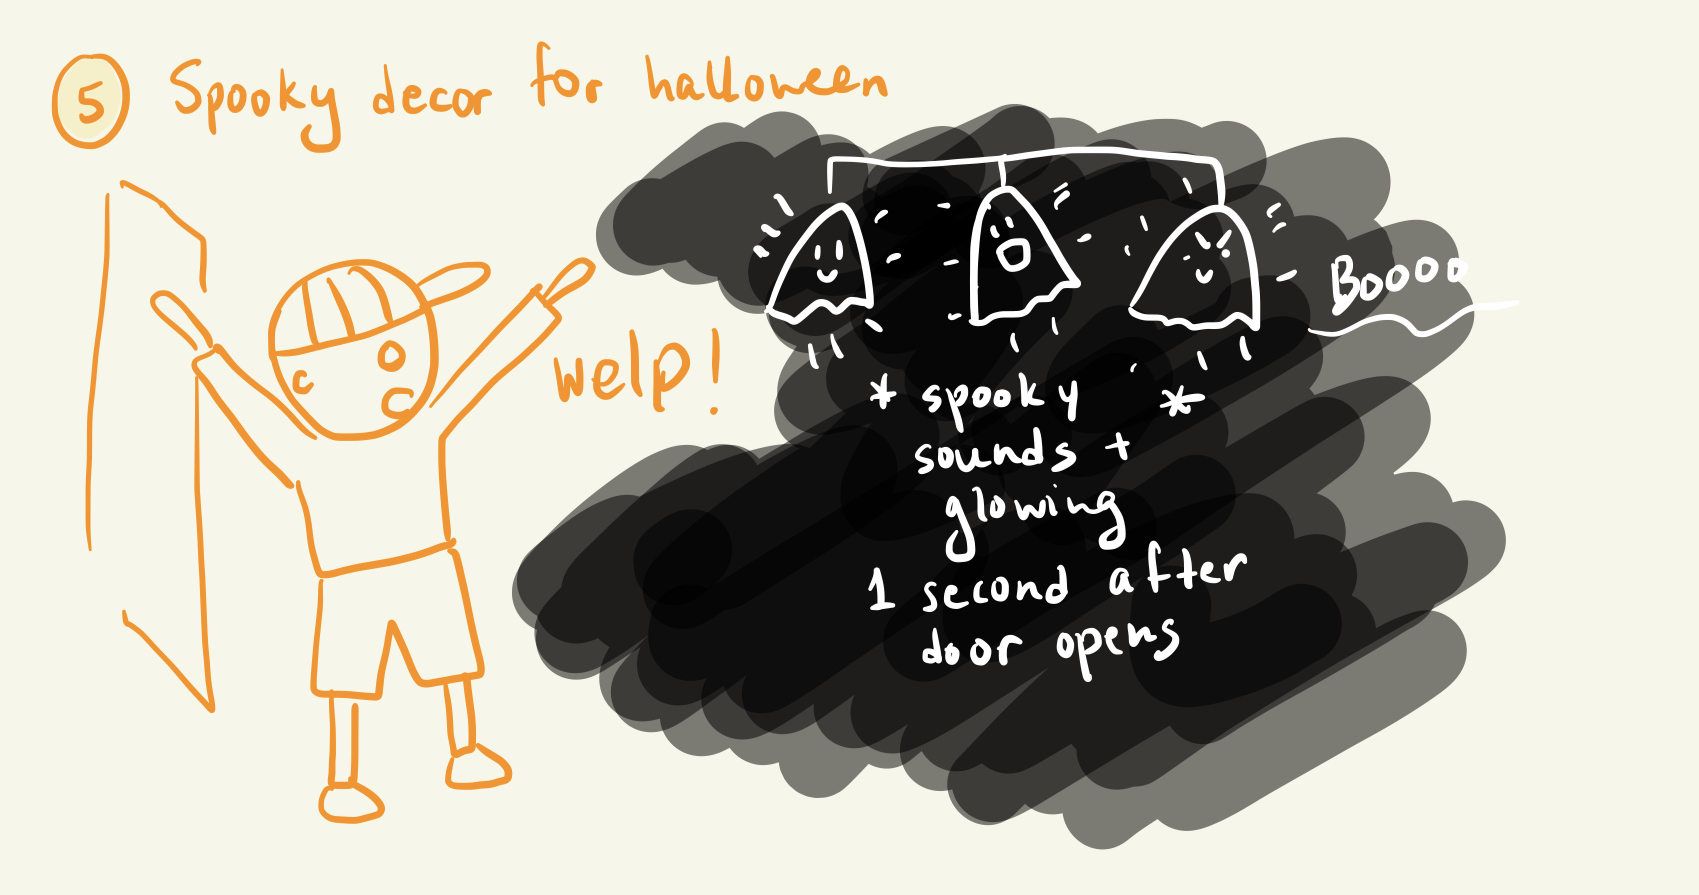 5 Spooky decor for halloween
welp!
Boooo
* spooky *
sounds +
glowing
1 second after
door opens